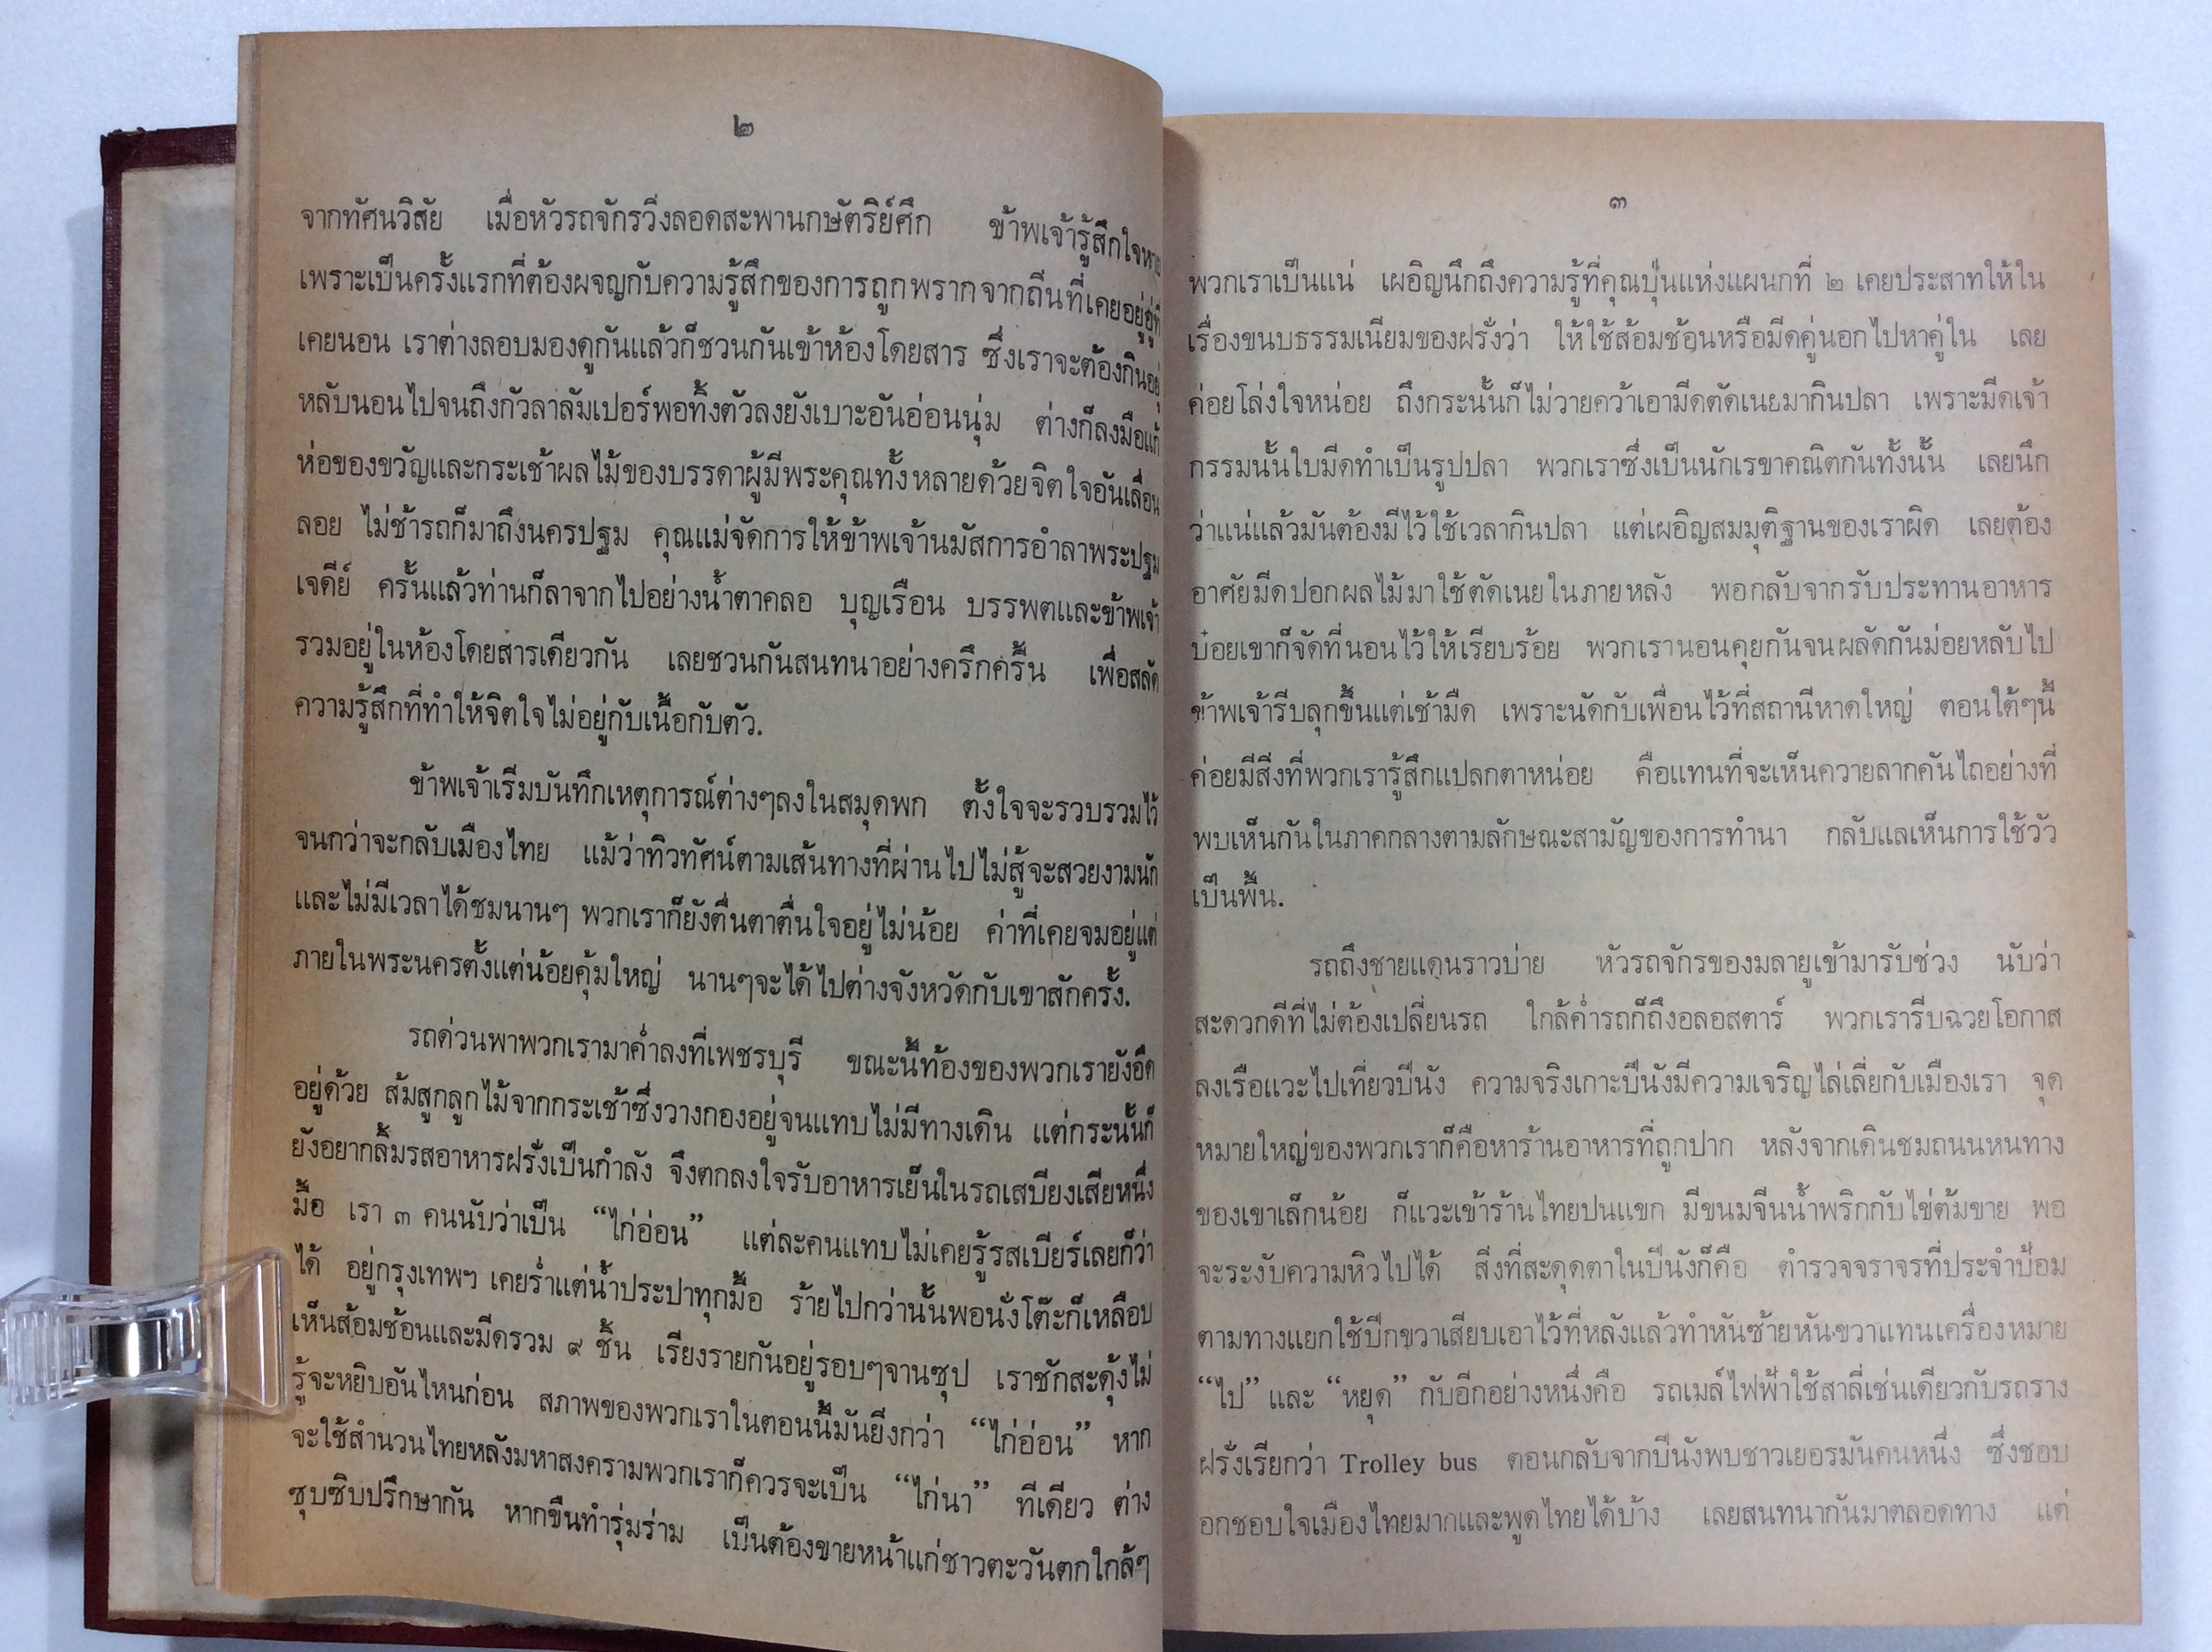 ๒
จากทัศนวิสัย เมื่อหัวรถจักรวิ่งลอดสะพานกษัตริย์ศึก ข้าพเจ้ารู้สึกใจหาย
เพราะเป็นครั้งแรกที่ต้องผจญกับความรู้สึกของการถูกพรากจากถิ่นที่เคยอยู่อู่ที่
เคยนอน เราต่างลอบมองดูกันแล้วก็ชวนกันเข้าห้องโดยสาร ซึ่งเราจะต้องกินอยู่
หลับนอนไปจนถึงกัวลาลัมเปอร์พอทิ้งตัวลงยังเบาะอันอ่อนนุ่ม ต่างก็ลงมือแก้
ห่อของขวัญและกระเช้าผลไม้ของบรรดาผู้มีพระคุณทั้งหลายด้วยจิตใจอันเลื่อน
ลอย ไม่ช้ารถก็มาถึงนครปฐม คุณแม่จัดการให้ข้าพเจ้านมัสการอำลาพระปฐม
เจดีย์ ครั้นแล้วท่านก็ลาจากไปอย่างน้ำตาคลอ บุญเรือน บรรพตและข้าพเจ้า
รวมอยู่ในห้องโดยสารเดียวกัน เลยชวนกันสนทนาอย่างครึกครื้น เพื่อสลัด
ความรู้สึกที่ทำให้จิตใจไม่อยู่กับเนื้อกับตัว.
ข้าพเจ้าเริ่มบันทึกเหตุการณ์ต่างๆลงในสมุดพก ตั้งใจจะรวบรวมไว้
จนกว่าจะกลับเมืองไทย แม้ว่าทิวทัศน์ตามเส้นทางที่ผ่านไปไม่สู้จะสวยงามนัก
และไม่มีเวลาได้ชมนานๆ พวกเราก็ยังตื่นตาตื่นใจอยู่ไม่น้อย ค่าที่เคยจมอยู่แต่
ภายในพระนครตั้งแต่น้อยคุ้มใหญ่ นานๆจะได้ไปต่างจังหวัดกับเขาสักครั้ง.
รถด่วนพาพวกเรามาค่ำลงที่เพชรบุรี ขณะนี้ท้องของพวกเรายังอืด
อยู่ด้วย ส้มสูกลูกไม้จากกระเช้าซึ่งวางกองอยู่จนแทบไม่มีทางเดิน แต่กระนั้นก็
ยังอยากลิ้มรสอาหารฝรั่งเป็นกำลัง จึงตกลงใจรับอาหารเย็นในรถเสบียงเสียหนึ่ง
มื้อ เรา ๓ คนนับว่าเป็น “ไก่อ่อน” แต่ละคนแทบไม่เคยรู้รสเบียร์เลยก็ว่า
ได้ อยู่กรุงเทพฯ เคยร่ำแต่น้ำประปาทุกมื้อ ร้ายไปกว่านั้นพอนั่งโต๊ะก็เหลือบ
เห็นส้อมช้อนและมีดรวม ๙ ชิ้น เรียงรายกันอยู่รอบๆจานซุป เราชักสะดุ้งไม่
รู้จะหยิบอันไหนก่อน สภาพของพวกเราในตอนนี้มันยิ่งกว่า “ไก่อ่อน” หาก
จะใช้สำนวนไทยหลังมหาสงครามพวกเราก็ควรจะเป็น “ไก่นา” ทีเดียว ต่าง
ซุบซิบปรึกษากัน หากขืนทำรุ่มร่าม เป็นต้องขายหน้าแก่ชาวตะวันตกใกล้ๆ
๓
พวกเราเป็นแน่ เผอิญนึกถึงความรู้ที่คุณปุ่นแห่งแผนกที่ ๒ เคยประสาทให้ใน
เรื่องขนบธรรมเนียมของฝรั่งว่า ให้ใช้ส้อมช้อนหรือมีดคู่นอกไปหาคู่ใน เลย
ค่อยโล่งใจหน่อย ถึงกระนั้นก็ไม่วายคว้าเอามีดตัดเนยมากินปลา เพราะมีดเจ้า
กรรมนั้นใบมีดทำเป็นรูปปลา พวกเราซึ่งเป็นนักเรขาคณิตกันทั้งนั้น เลยนึก
ว่าแน่แล้วมันต้องมีไว้ใช้เวลากินปลา แต่เผอิญสมมุติฐานของเราผิด เลยต้อง
อาศัยมีดปอกผลไม้มาใช้ตัดเนยในภายหลัง พอกลับจากรับประทานอาหาร
บ๋อยเขาก็จัดที่นอนไว้ให้เรียบร้อย พวกเรานอนคุยกันจนผลัดกันม่อยหลับไป
ข้าพเจ้ารีบลุกขึ้นแต่เช้ามืด เพราะนัดกับเพื่อนไว้ที่สถานีหาดใหญ่ ตอนใต้ๆนี้
ค่อยมีสิ่งที่พวกเรารู้สึกแปลกตาหน่อย คือแทนที่จะเห็นควายลากคันไถอย่างที่
พบเห็นกันในภาคกลางตามลักษณะสามัญของการทำนา กลับแลเห็นการใช้วัว
เป็นพื้น.
รถถึงชายแดนราวบ่าย หัวรถจักรของมลายูเข้ามารับช่วง นับว่า
สะดวกดีที่ไม่ต้องเปลี่ยนรถ ใกล้ค่ำรถก็ถึงอลอสตาร์ พวกเรารีบฉวยโอกาส
ลงเรือแวะไปเที่ยวปีนัง ความจริงเกาะปีนังมีความเจริญไล่เลี่ยกับเมืองเรา จุด
หมายใหญ่ของพวกเราก็คือหาร้านอาหารที่ถูกปาก หลังจากเดินชมถนนหนทาง
ของเขาเล็กน้อย ก็แวะเข้าร้านไทยปนแขก มีขนมจีนน้ำพริกกับไข่ต้มขาย พอ
จะระงับความหิวไปได้ สิ่งที่สะดุดตาในปีนังก็คือ ตำรวจจราจรที่ประจำป้อม
ตามทางแยกใช้ปีกขวาเสียบเอาไว้ที่หลังแล้วทำหันซ้ายหันขวาแทนเครื่องหมาย
“ไป” และ “หยุด” กับอีกอย่างหนึ่งคือ รถเมล์ไฟฟ้าใช้สาลี่เช่นเดียวกับรถราง
ฝรั่งเรียกว่า Trolley bus ตอนกลับจากปีนังพบชาวเยอรมันคนหนึ่ง ซึ่งชอบ
อกชอบใจเมืองไทยมากและพูดไทยได้บ้าง เลยสนทนากันมาตลอดทาง แต่